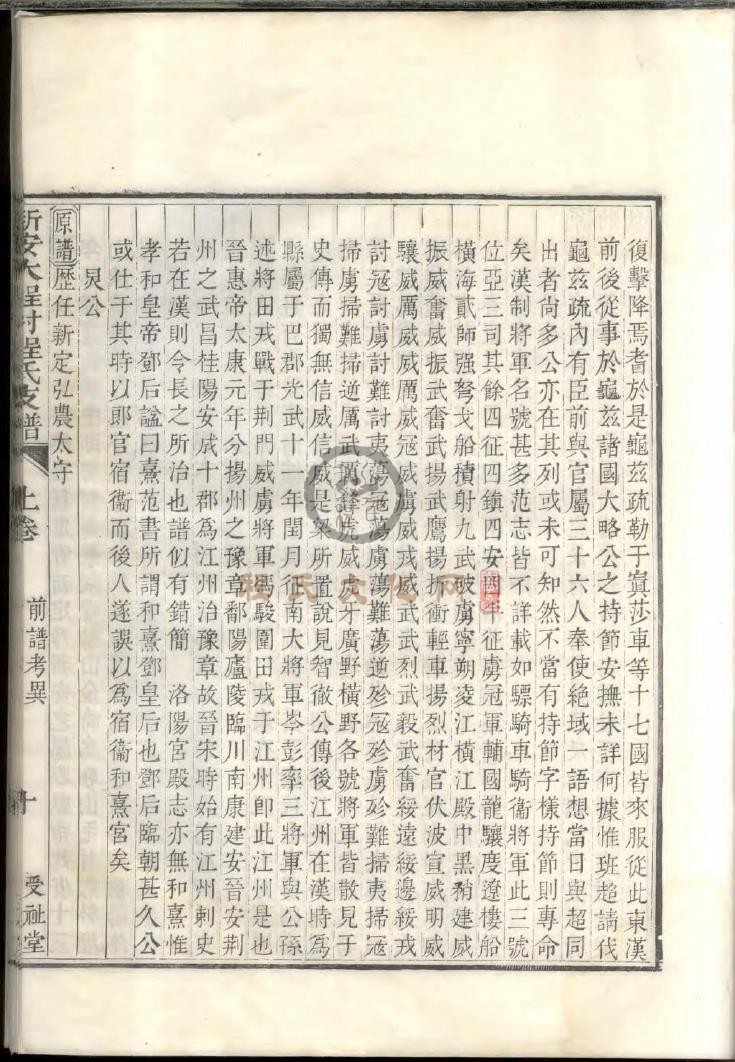 復擊降焉耆於是龜茲疏勒于窴莎車等十七國皆來服從此東漢
前後從事於龜茲諸國大略公之持節安撫未詳何據惟班超請伐
龜茲疏內有臣前與官屬三十六人奉使絕域一語想當日與超同
出者尙多公亦在其列或未可知然不當有持節字樣持節則專命
矣漢制將軍名號甚多范志皆不詳載如驃騎車騎衞將軍此三號
位亞三司其餘四征四鎭四安四平征虜冠軍輔國龍驤度遼樓船
橫海貳師强弩戈船積射九武破虜寧朔凌江橫江殿中黑矟建威
振威奮威振武奮武揚武鷹揚折衝輕車揚烈材官伏波宣威明威
驤威厲威威厲威冠威虜威戎威武武烈武毅武奮綏遠綏邊綏戎
討冦討虜討難討夷蕩冦蕩虜蕩難蕩逆殄冦殄虜殄難掃夷掃冦
掃虜掃難掃逆厲武厲鋒虎威虎牙廣野橫野各號將軍皆散見于
史傳而獨無信威信威是梁所置說見智徹公傳後江州在漢時爲
縣屬于巴郡光武十一年閏月征南大將軍岑彭率三將軍與公孫
述將田戎戰于荆門威虜將軍馮駿圍田戎于江州卽此江州是也
晉惠帝太康元年分揚州之豫章鄱陽廬陵臨川南康建安晉安荆
州之武昌桂陽安成十郡爲江州治豫章故晉宋時始有江州刺史
若在漢則令長之所治也譜似有錯簡 洛陽宮殿志亦無和熹惟
孝和皇帝鄧后諡曰熹范書所謂和熹鄧皇后也鄧后臨朝甚久公
或仕于其時以郎官宿衞而後人遂誤以爲宿衞和熹宮矣
炅公
原譜 歷任新定弘農太守
新安大程村程氏支譜 上卷 前譜考異 十 受祉堂
程氏文化网